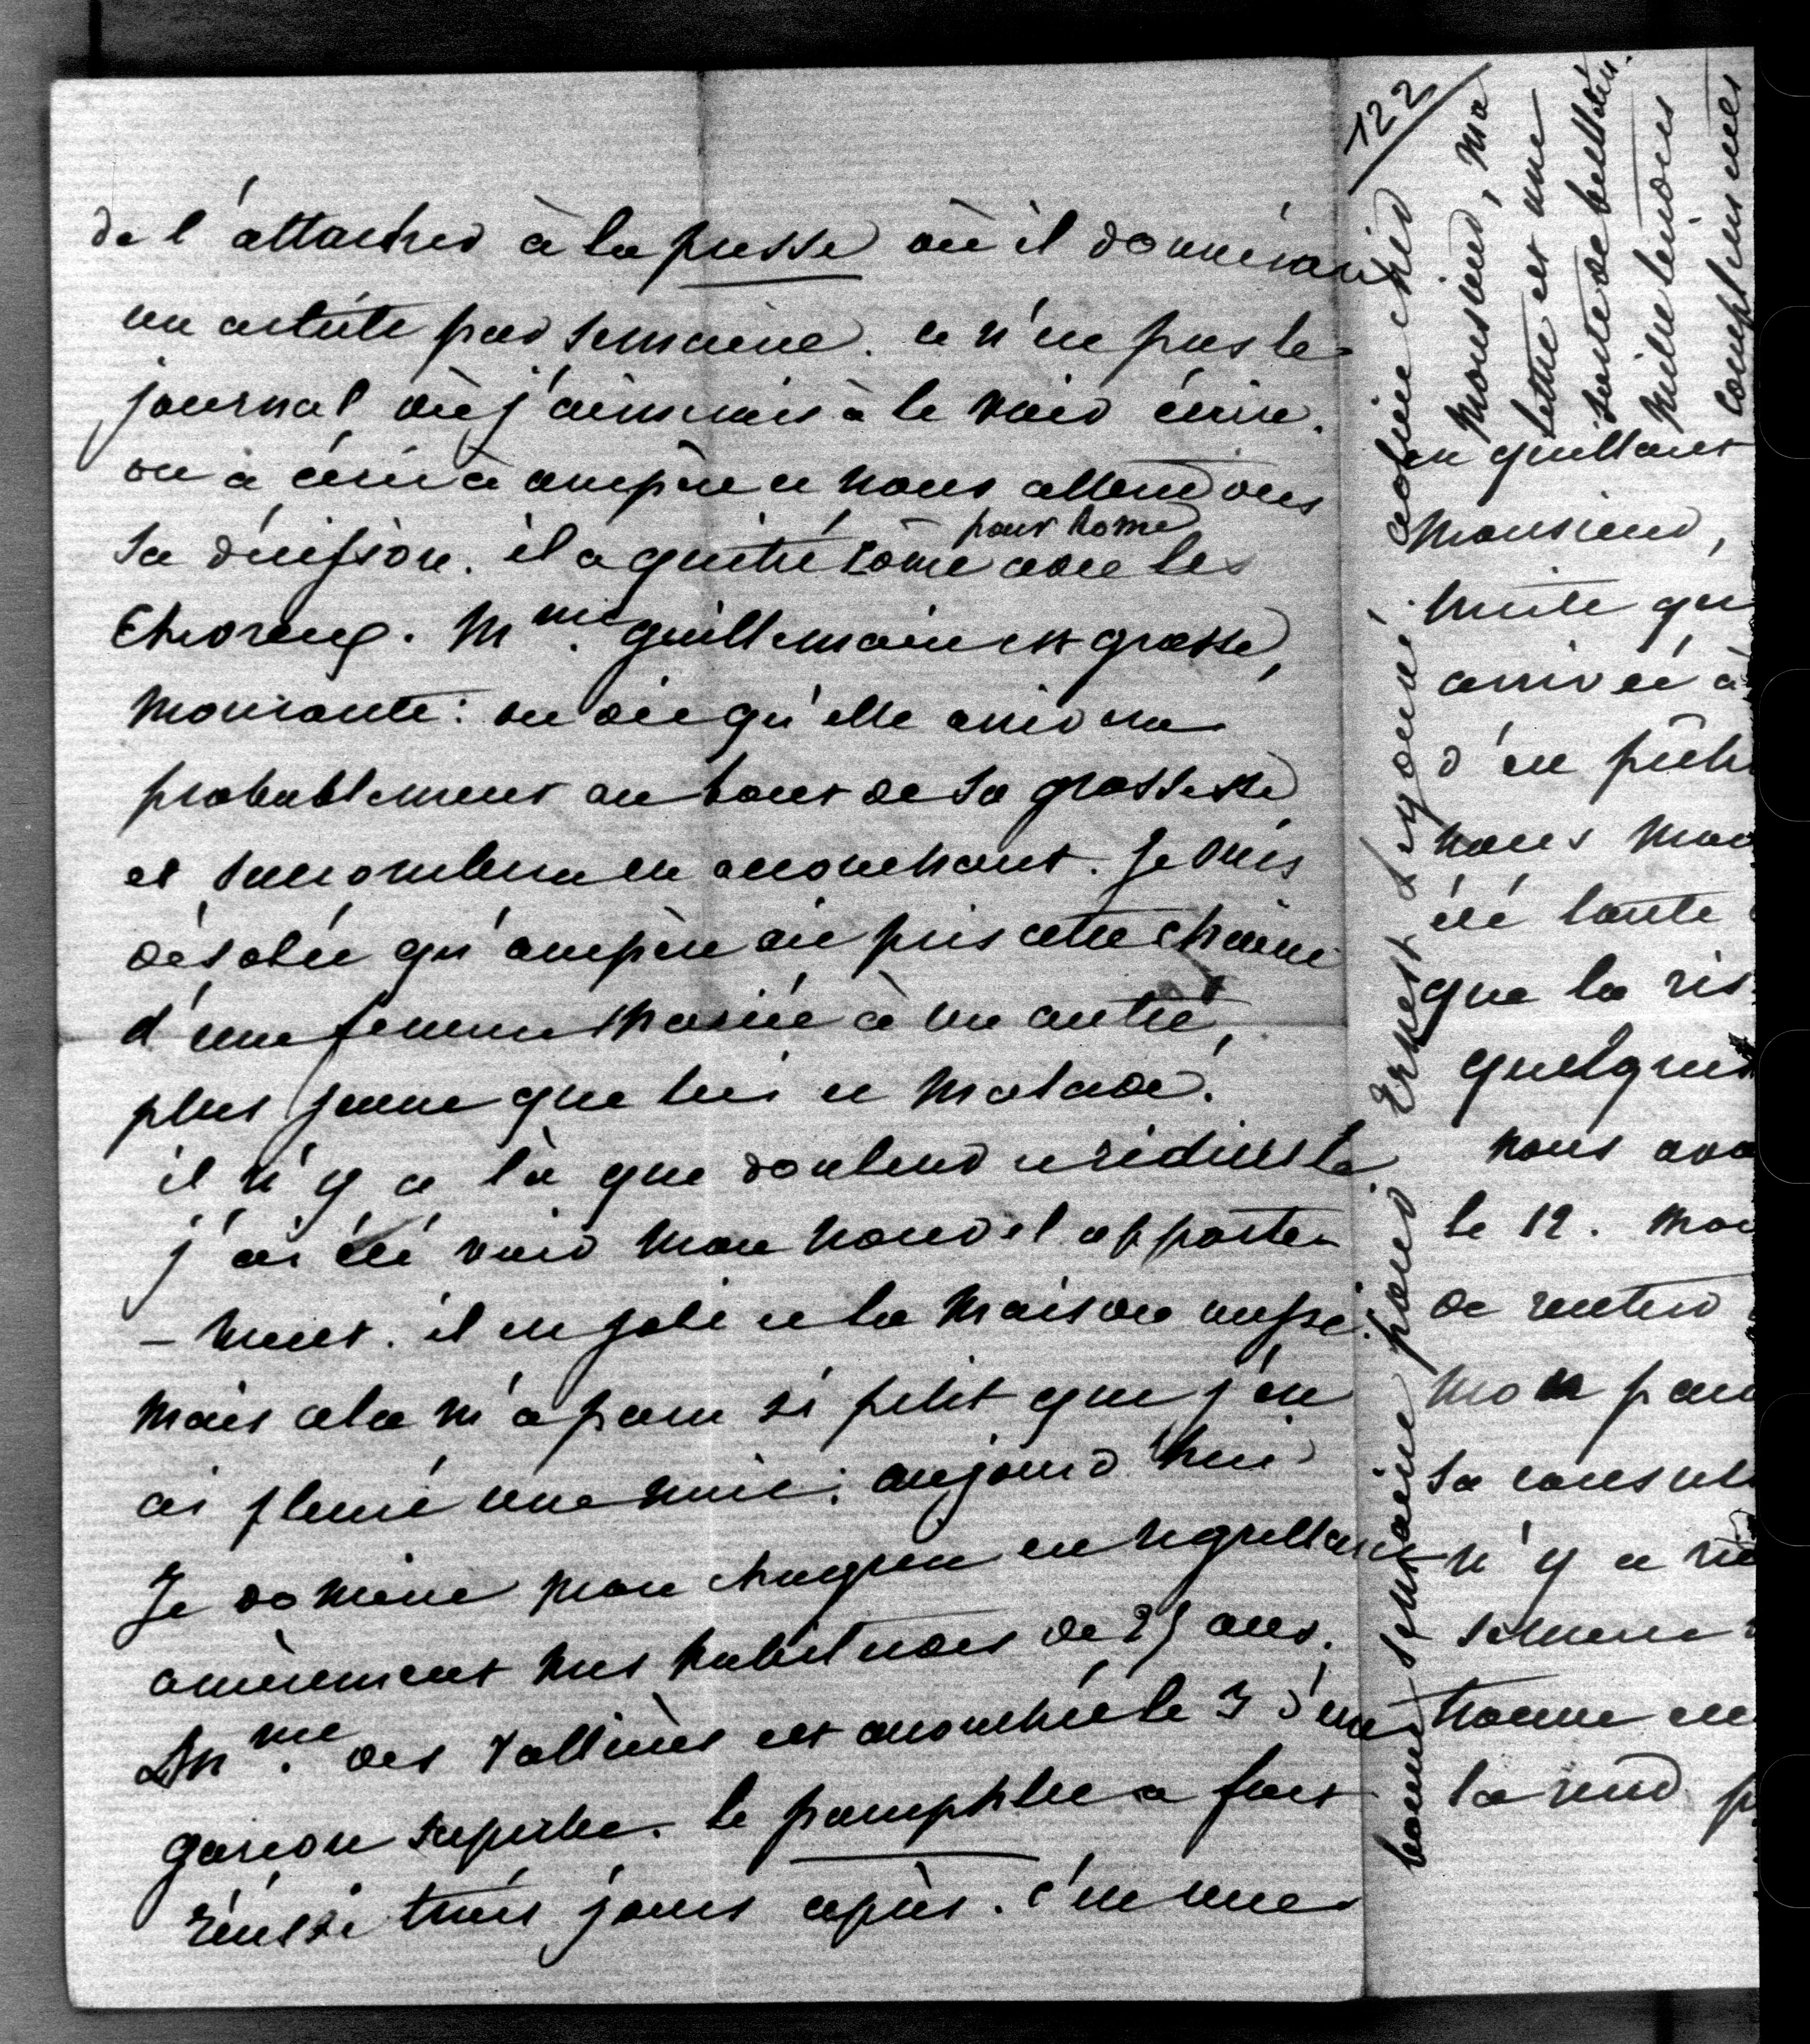 de l'attacher à la presse où il donnerait
un article par semaine. ce n'est pas le
journal où j'aimerais à le voir écrire.
on a écrit à ampère et nous attendons
sa décision. il a quitté Côme pour Rome avec les
Cheoreux. Mme. guillemain est grosse,
mourante: on dit qu'elle arrivera
probablement au bout de sa grossesse
et succombera en accouchant. Je suis
désolée qu'ampère ait pris cette chaine
d'une femme mariée à un autre,
plus jeune que lui et malade.
il n'y a là que douleur et ridicule
j'ai été voir mon nouvel apparte
- ment. il est joli et la maison aussi.
mais cela m'a paru si petit que j'en
ai pleuré une nuit; aujourd'hui
Je domine mon chagrin en regrettant
amèrement mes habitudes de 25 ans.
Mme. des Vallières est accouchée le 3 d'un
garçon superbe. le pamphlet a fort
réussi trois jours après. c'est une
122
bonne semaine pour Ernest Legouvé.
cher
Monsieur, ma
lettre est une
sorte de bulletin.
mille tendres
complimens
en quittant
Monsieur,
huite qu
arrivée à
d'en
nous
été toute
que la
quelques
nous
le 12.
de rentrer
mon
sa
n'y a
semene
trouve en
la rend